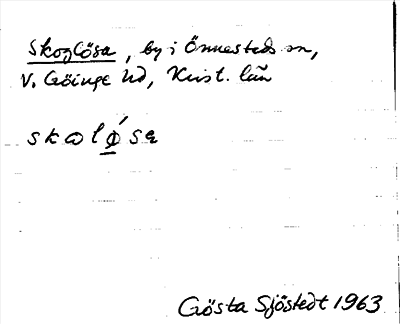 Skoglösa, by i Önnestads sn,
V. Göinge hd, Krist. län
skωlǿ̲sa
Gösta Sjöstedt 1963